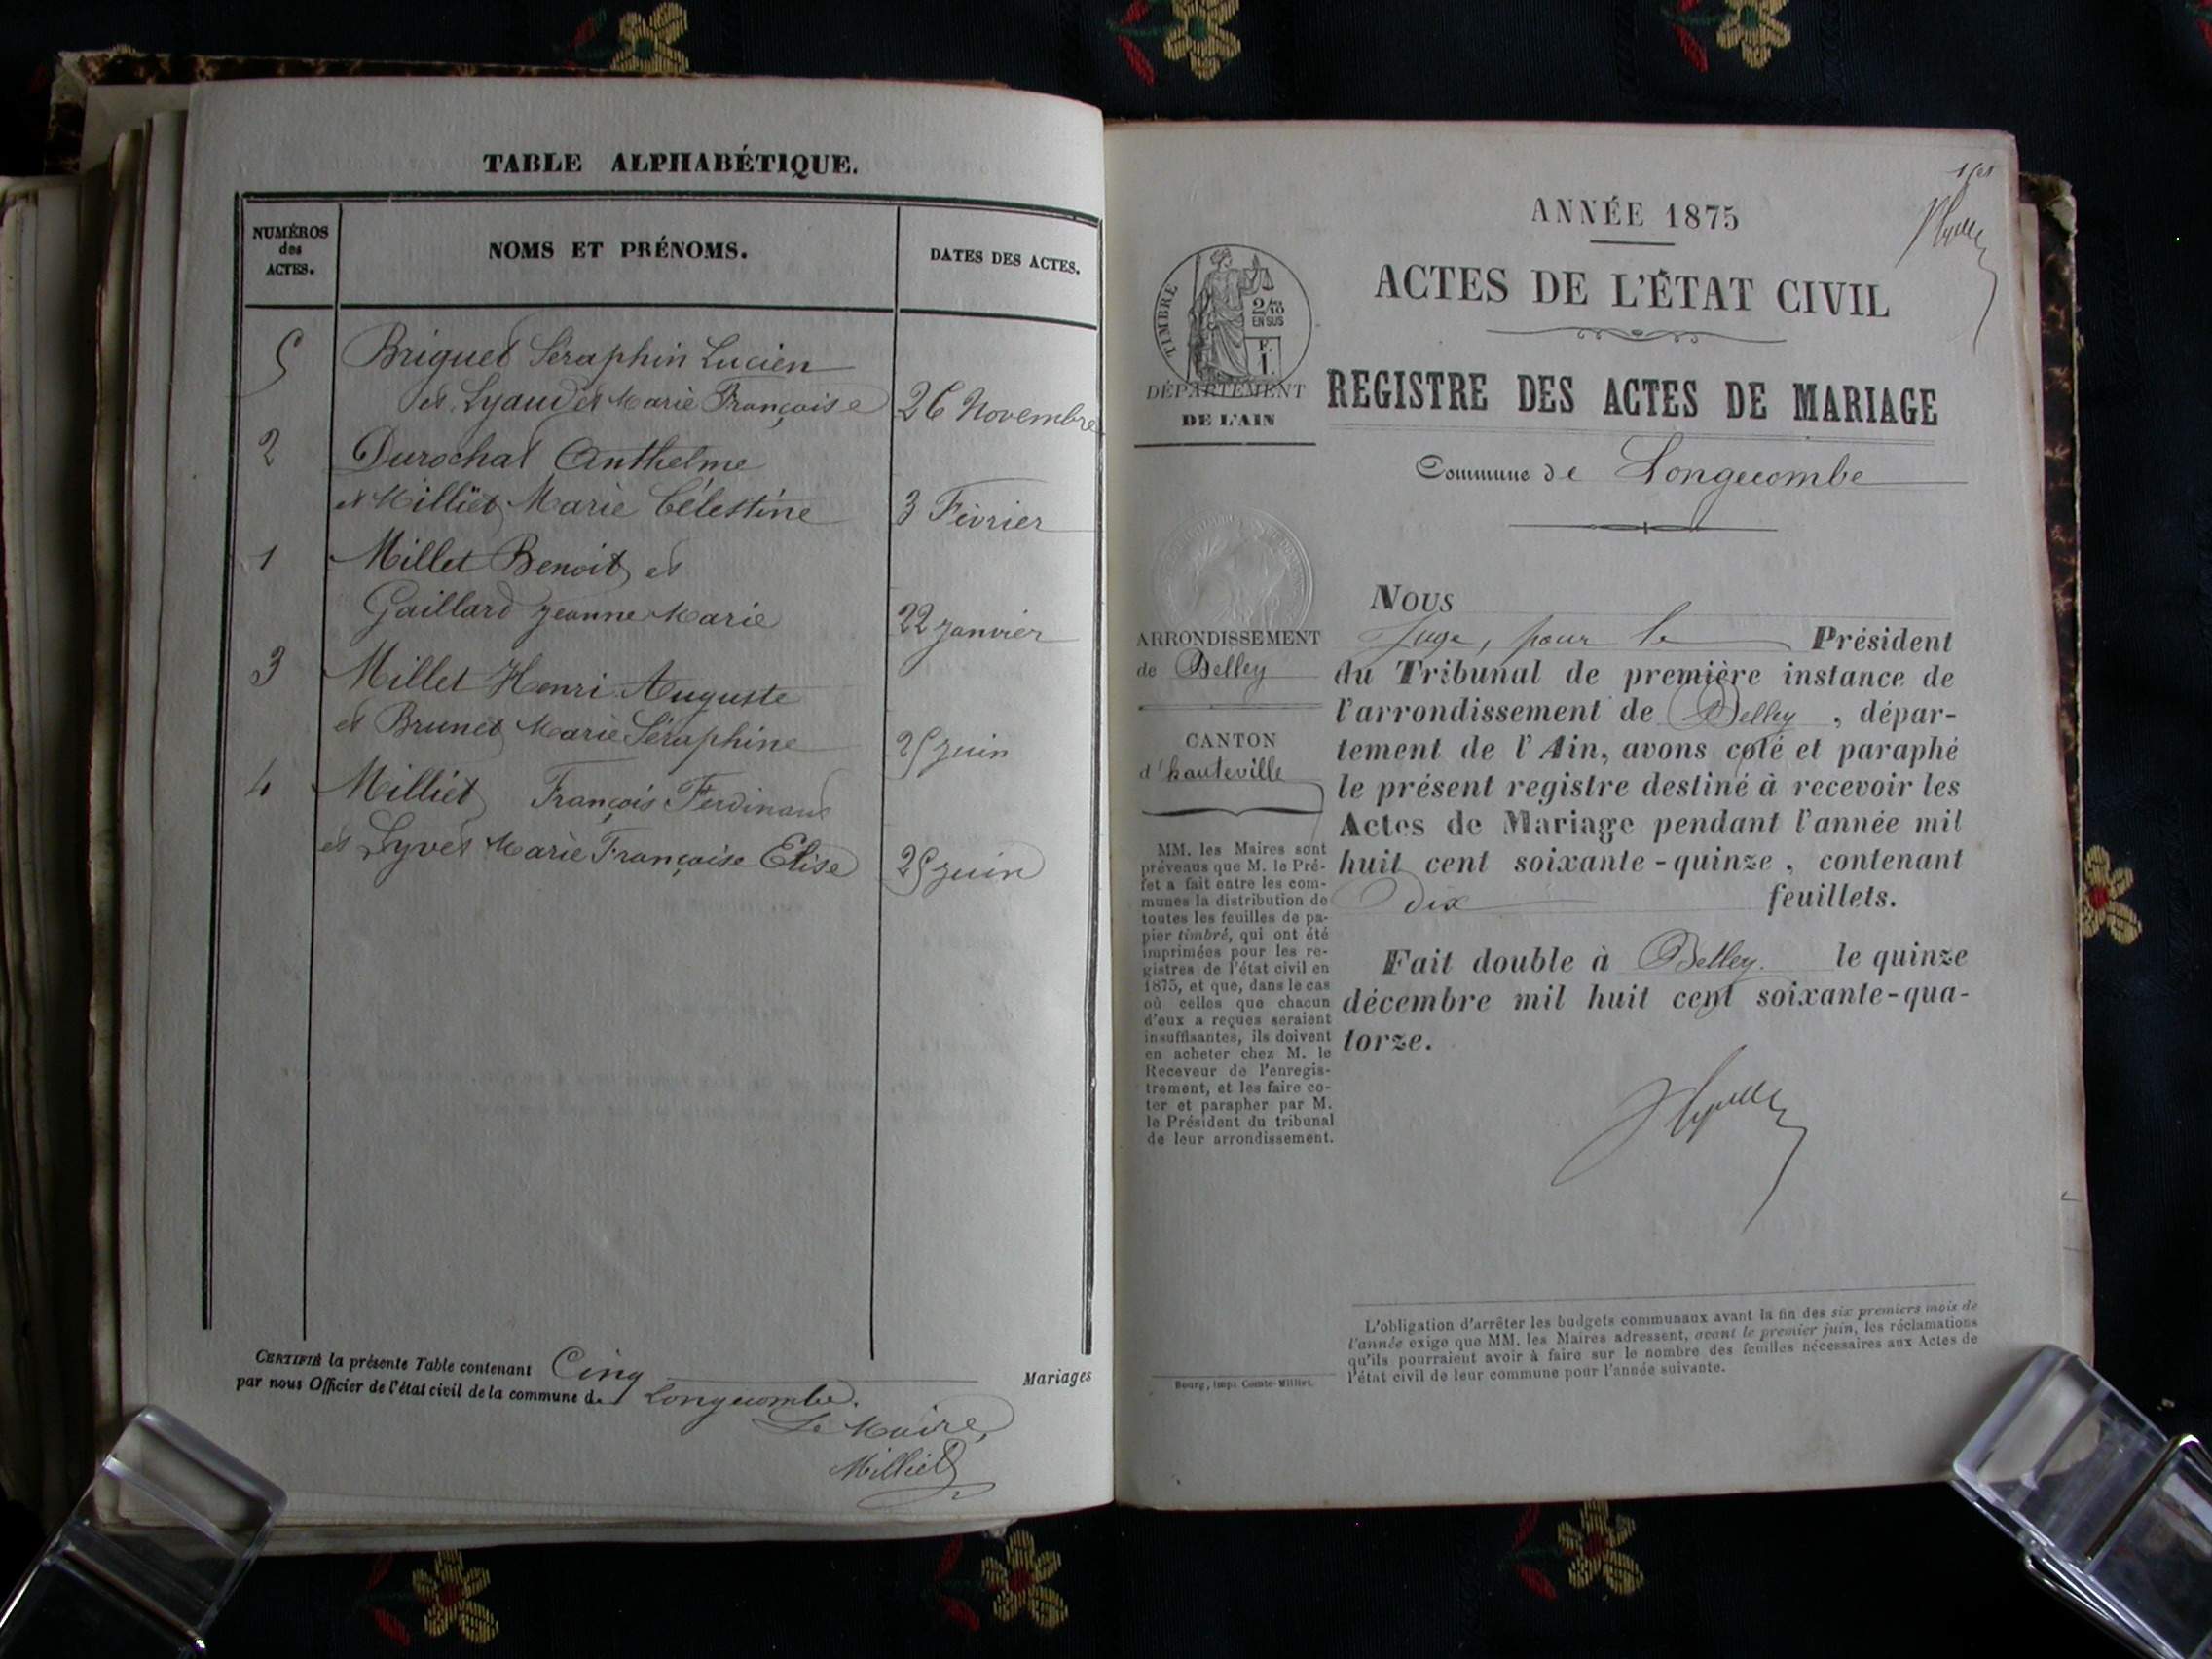 TABLE ALPHABÉTIQUE.
NUMÉROS
des
ACTES.
NOMS ET PRÉNOMS.
DATES DES ACTES.
5 Briguet Séraphin Lucien
et Lyaudet Marie Françoise 26 Novembre
2 Durochat Anthelme
et Milliet Marie Célestine 3 Février
1 Millet Benoit et
Gaillard Jeanne Marie 22 Janvier
3 Millet Henri Auguste
et Brunet Marie Séraphine 25 juin
4 Milliet François Ferdinand
et Lyvet Marie Françoise Elise 25 juin
CERTIFIÉ la présente Table contenant Cinq Mariages
par nous Officier de l'état civil de la commune de Longecombe.
Le Maire,
Milliet
ANNÉE 1875
ACTES DE L'ÉTAT CIVIL
TIMBRE
2/10
EN SUS
F.
1.
DÉPARTEMENT
DE L'AIN
REGISTRE DES ACTES DE MARIAGE
Commune de Longecombe
ARRONDISSEMENT
de Belley
CANTON
d'hauteville
MM. les Maires sont
prévenus que M. le Pré-
fet a fait entre les com-
munes la distribution de
toutes les feuilles de pa-
pier timbré, qui ont été
imprimées pour les re-
gistres de l'état civil en
1875, et que, dans le cas
où celles que chacun
d'eux a reçues seraient
insuffisantes, ils doivent
en acheter chez M. le
Receveur de l'enregis-
trement, et les faire co-
ter et parapher par M.
le Président du tribunal
de leur arrondissement.
NOUS
Juge, pour le Président
du Tribunal de première instance de
l'arrondissement de Belley, dépar-
tement de l'Ain, avons coté et paraphé
le présent registre destiné à recevoir les
Actes de Mariage pendant l'année mil
huit cent soixante-quinze, contenant
dix feuillets.
Fait double à Belley. le quinze
décembre mil huit cent soixante-qua-
torze.
L'obligation d'arrêter les budgets communaux avant la fin des six premiers mois de
l'année exige que MM. les Maires adressent, avant le premier juin, les réclamations
qu'ils pourraient avoir à faire sur le nombre des feuilles nécessaires aux Actes de
l'état civil de leur commune pour l'année suivante.
Bourg, imp. Comte-Milliet.